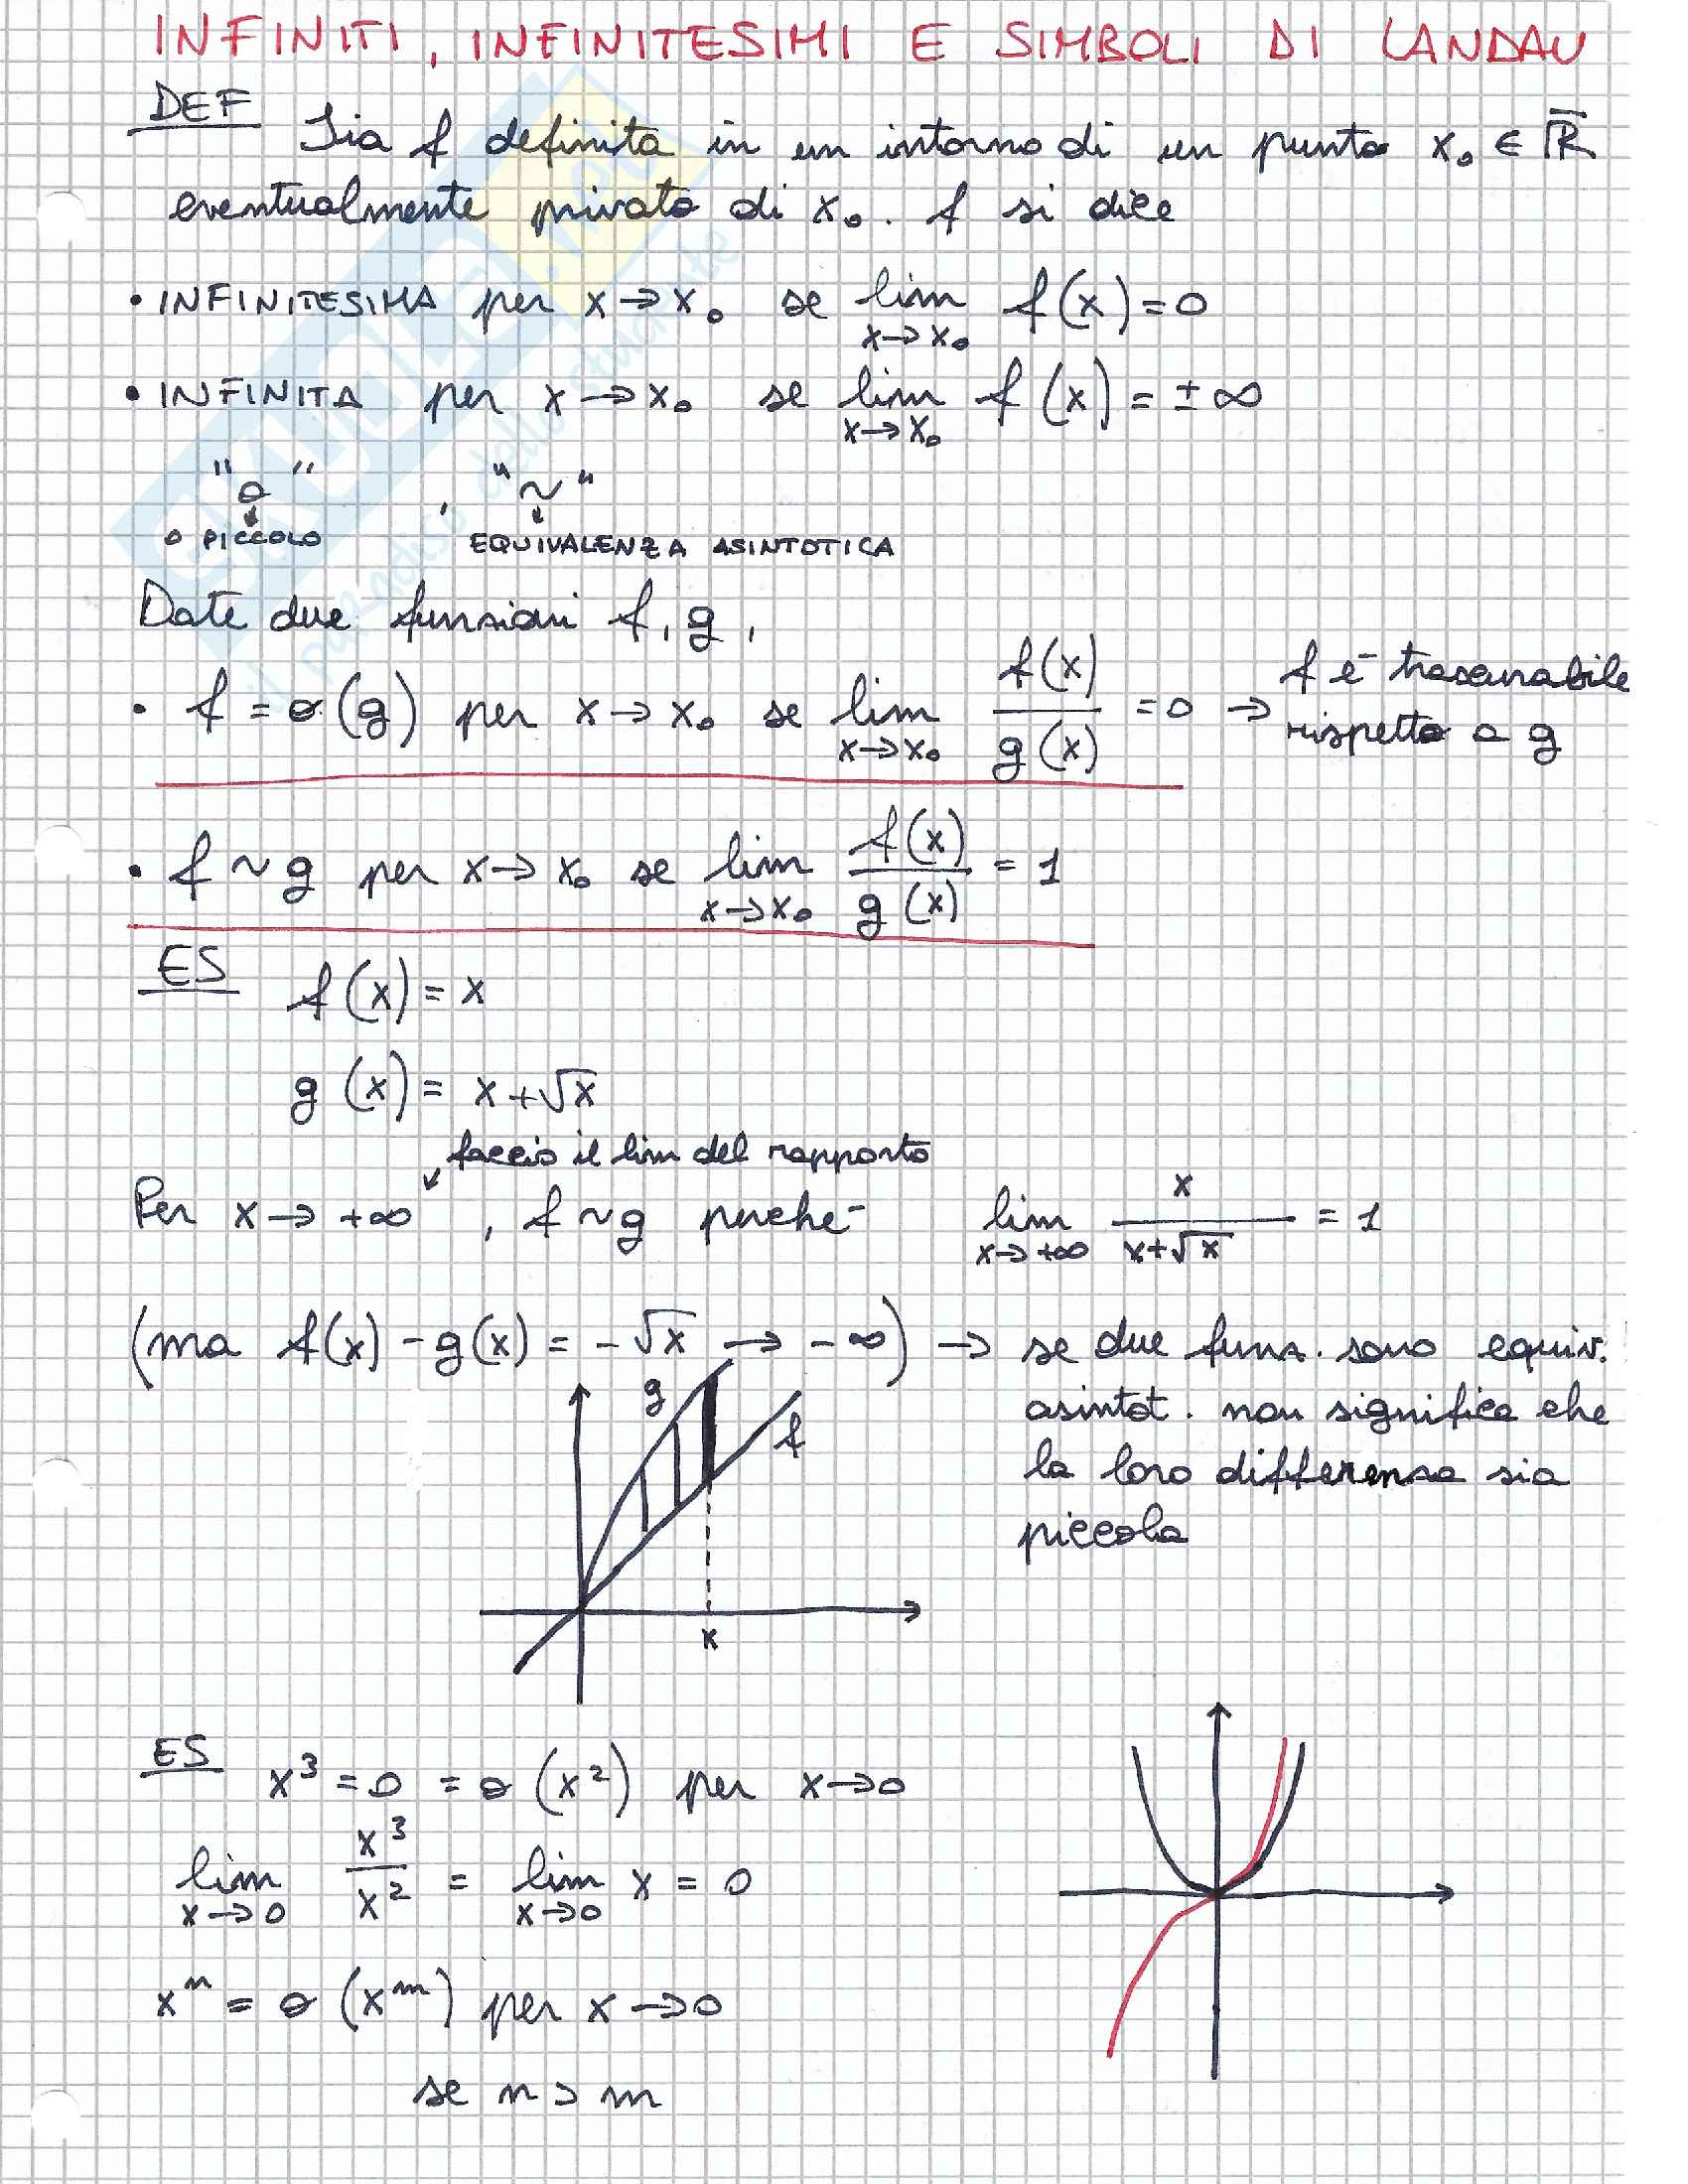 INFINITI, INFINITESIMI E SIMBOLI DI LANDAU
DEF Sia f definita in un intorno di un punto x₀ ∈ R̅
eventualmente privato di x₀. f si dice
• INFINITESIMA per x→x₀ se lim x→x₀ f(x)=0
• INFINITA per x→x₀ se lim x→x₀ f(x)=±∞
"o" , "~"
o PICCOLO EQUIVALENZA ASINTOTICA
Date due funzioni f, g,
• f = o(g) per x→x₀ se lim x→x₀ f(x)/g(x) = 0 → f è trascurabile
rispetto a g
• f ~ g per x→x₀ se lim x→x₀ f(x)/g(x) = 1
ES f(x) = x
g(x) = x+√x
faccio il lim del rapporto
Per x→+∞ , f~g perché lim x→+∞ x/(x+√x) = 1
(ma f(x)-g(x) = -√x → -∞) → se due funz. sono equiv.
asintot. non significa che
la loro differenza sia
piccola
g
f
x
ES x³ = 0 = o(x²) per x→0
lim x→0 x³/x² = lim x→0 x = 0
xⁿ = o(xᵐ) per x→0
se n > m
SKUOLA.net
il paradiso dello studente